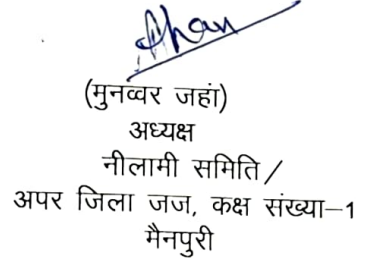 (मुनव्वर जहां)
अध्यक्ष
नीलामी समिति /
अपर जिला जज, कक्ष संख्या–1
मैनपुरी